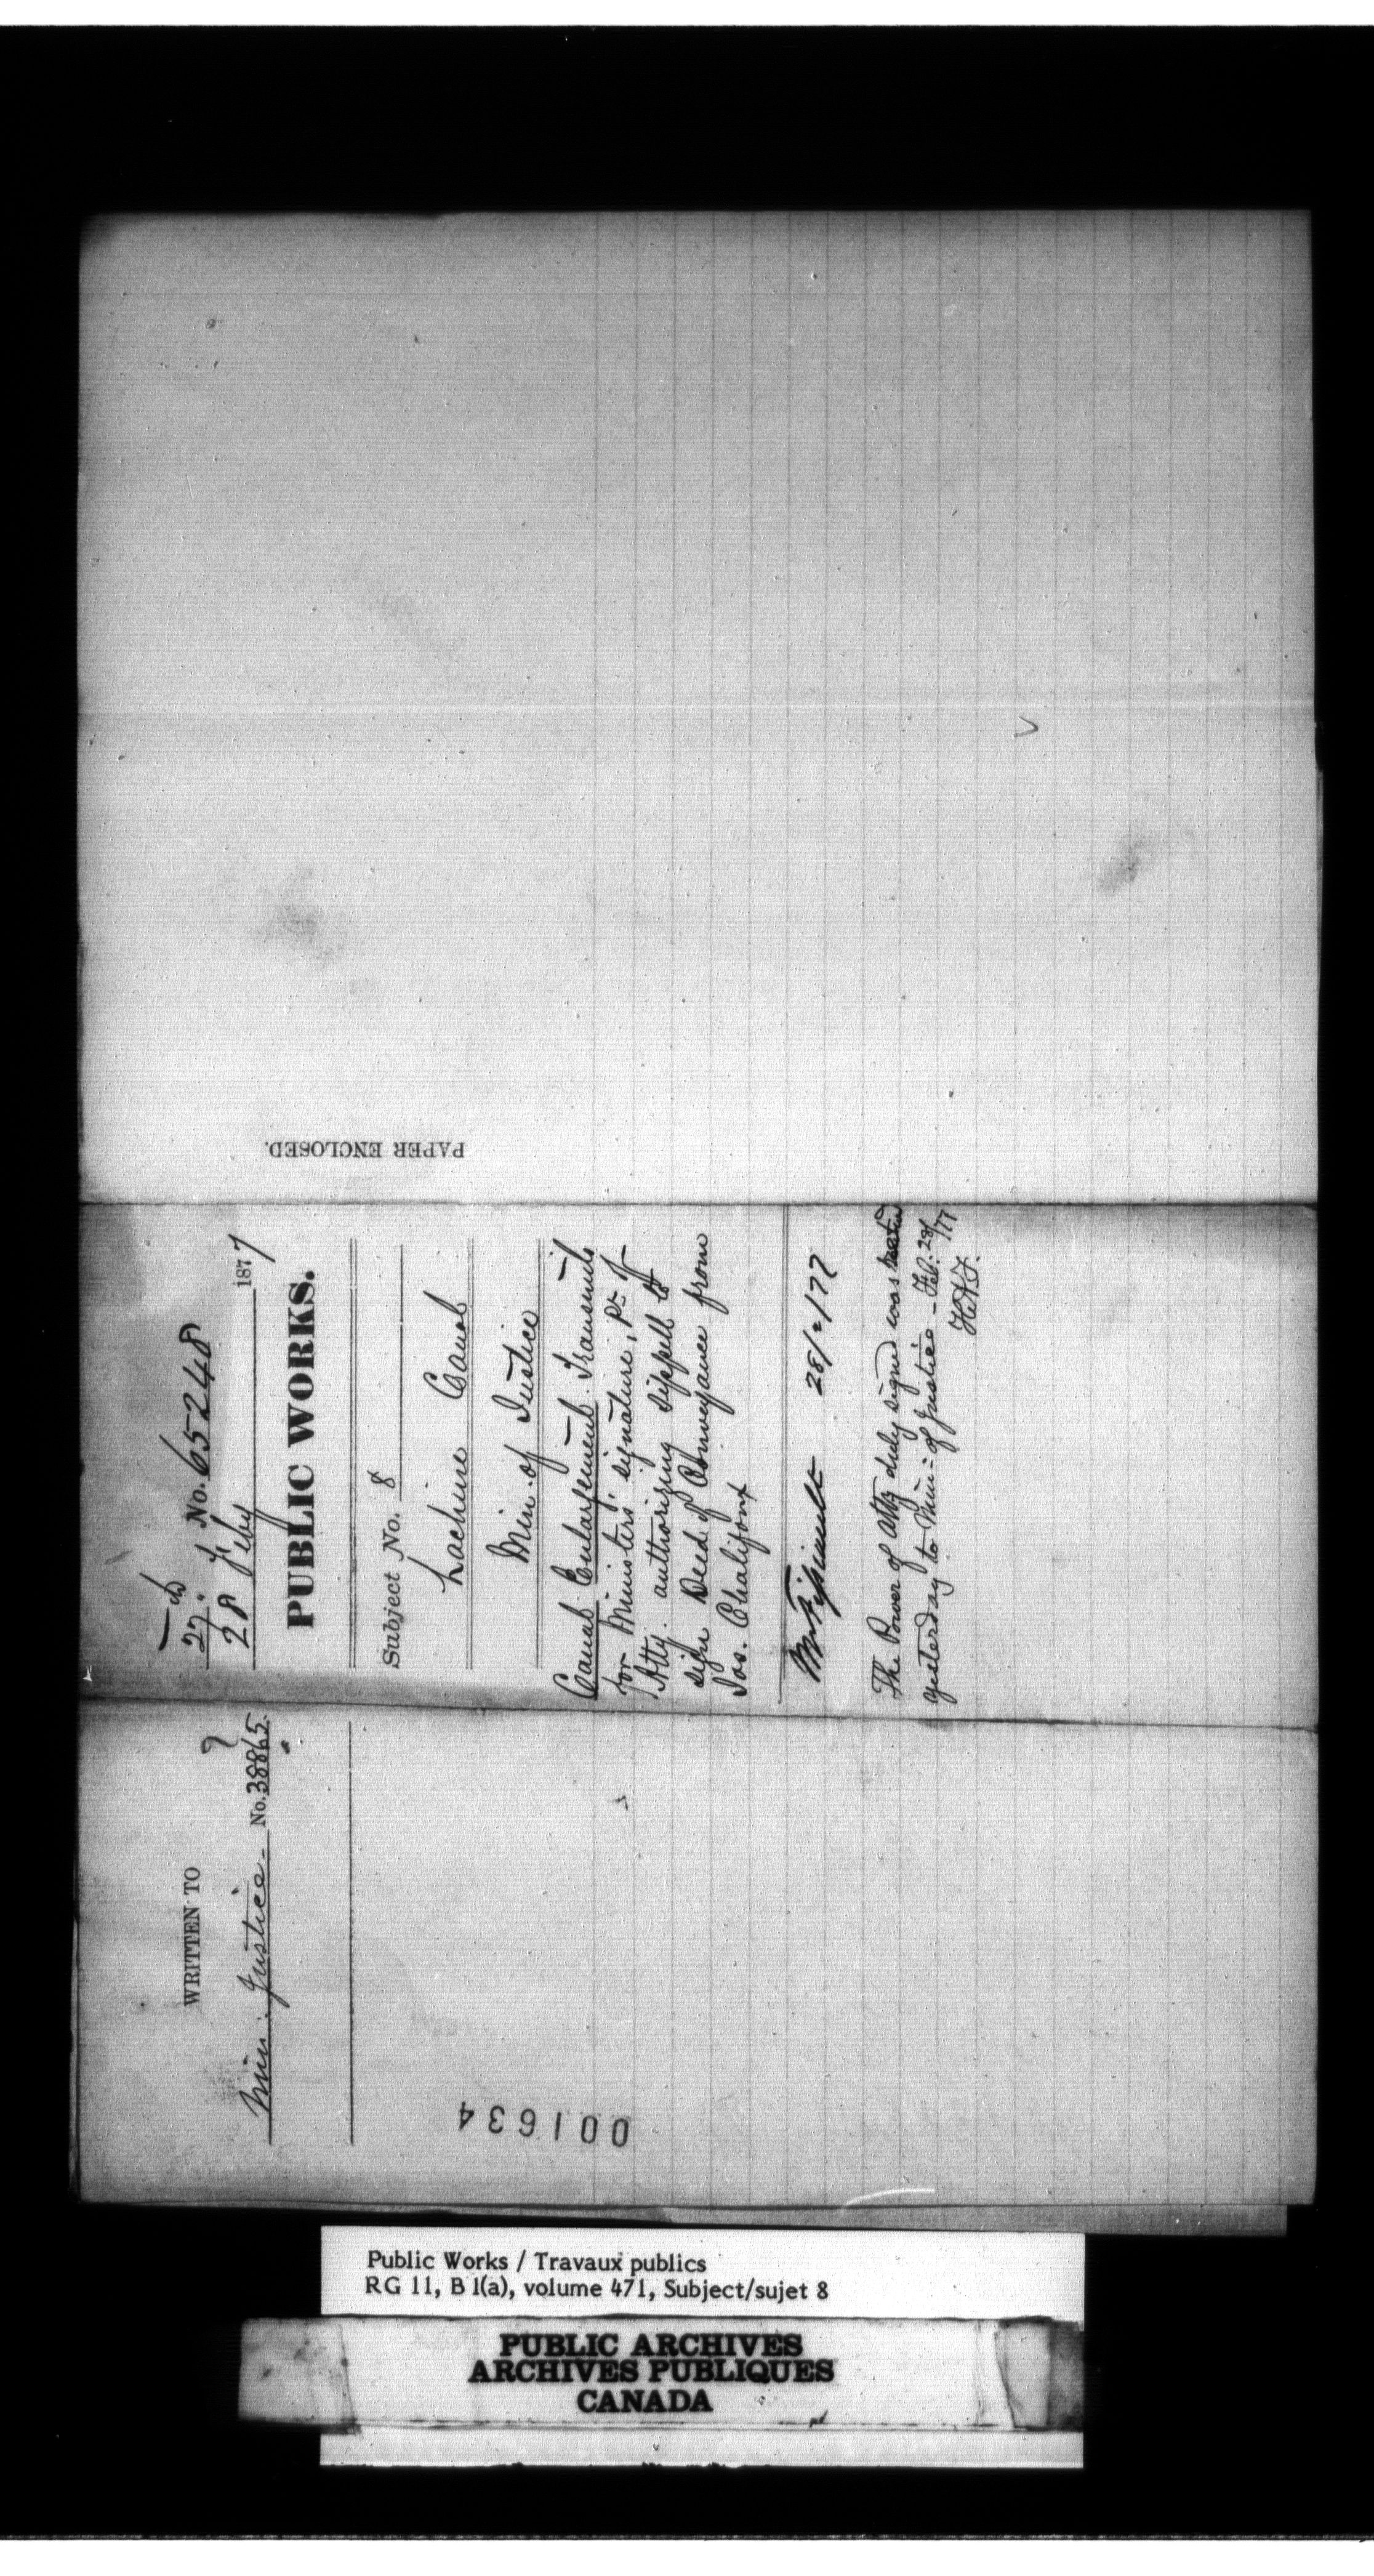 PAPER ENCLOSED.
27. No. 65248
28 Feby 1877
PUBLIC WORKS.
Subject No. 8
Lachine Canal
Min. of Justice
Canal Enlargement. Transmits
for Ministers' signature, Pr of
Atty. authorizing Sippell to
sign Deed of Conveyance from
Jos. Chalifoux
28/2/77
The Power of Atty duly signed was
yesterday to Min: of Justice - Feb. 28/77
WRITTEN TO
Min: Justice - No. 38865
001634
Public Works / Travaux publics
RG 11, B 1(a), volume 471, Subject/sujet 8
PUBLIC ARCHIVES
ARCHIVES PUBLIQUES
CANADA